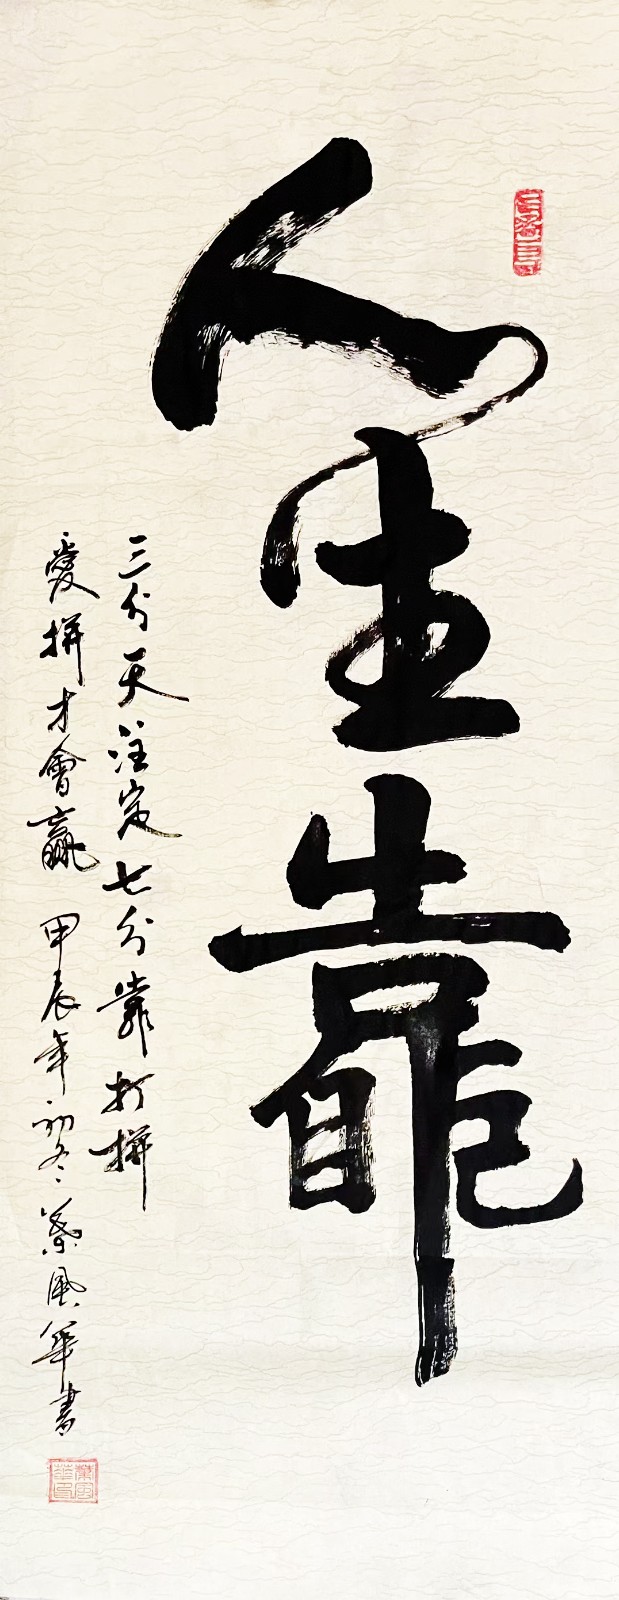 人生靠
三分天注定七分靠打拼
愛拼才會贏 甲辰年初冬 葉風華書